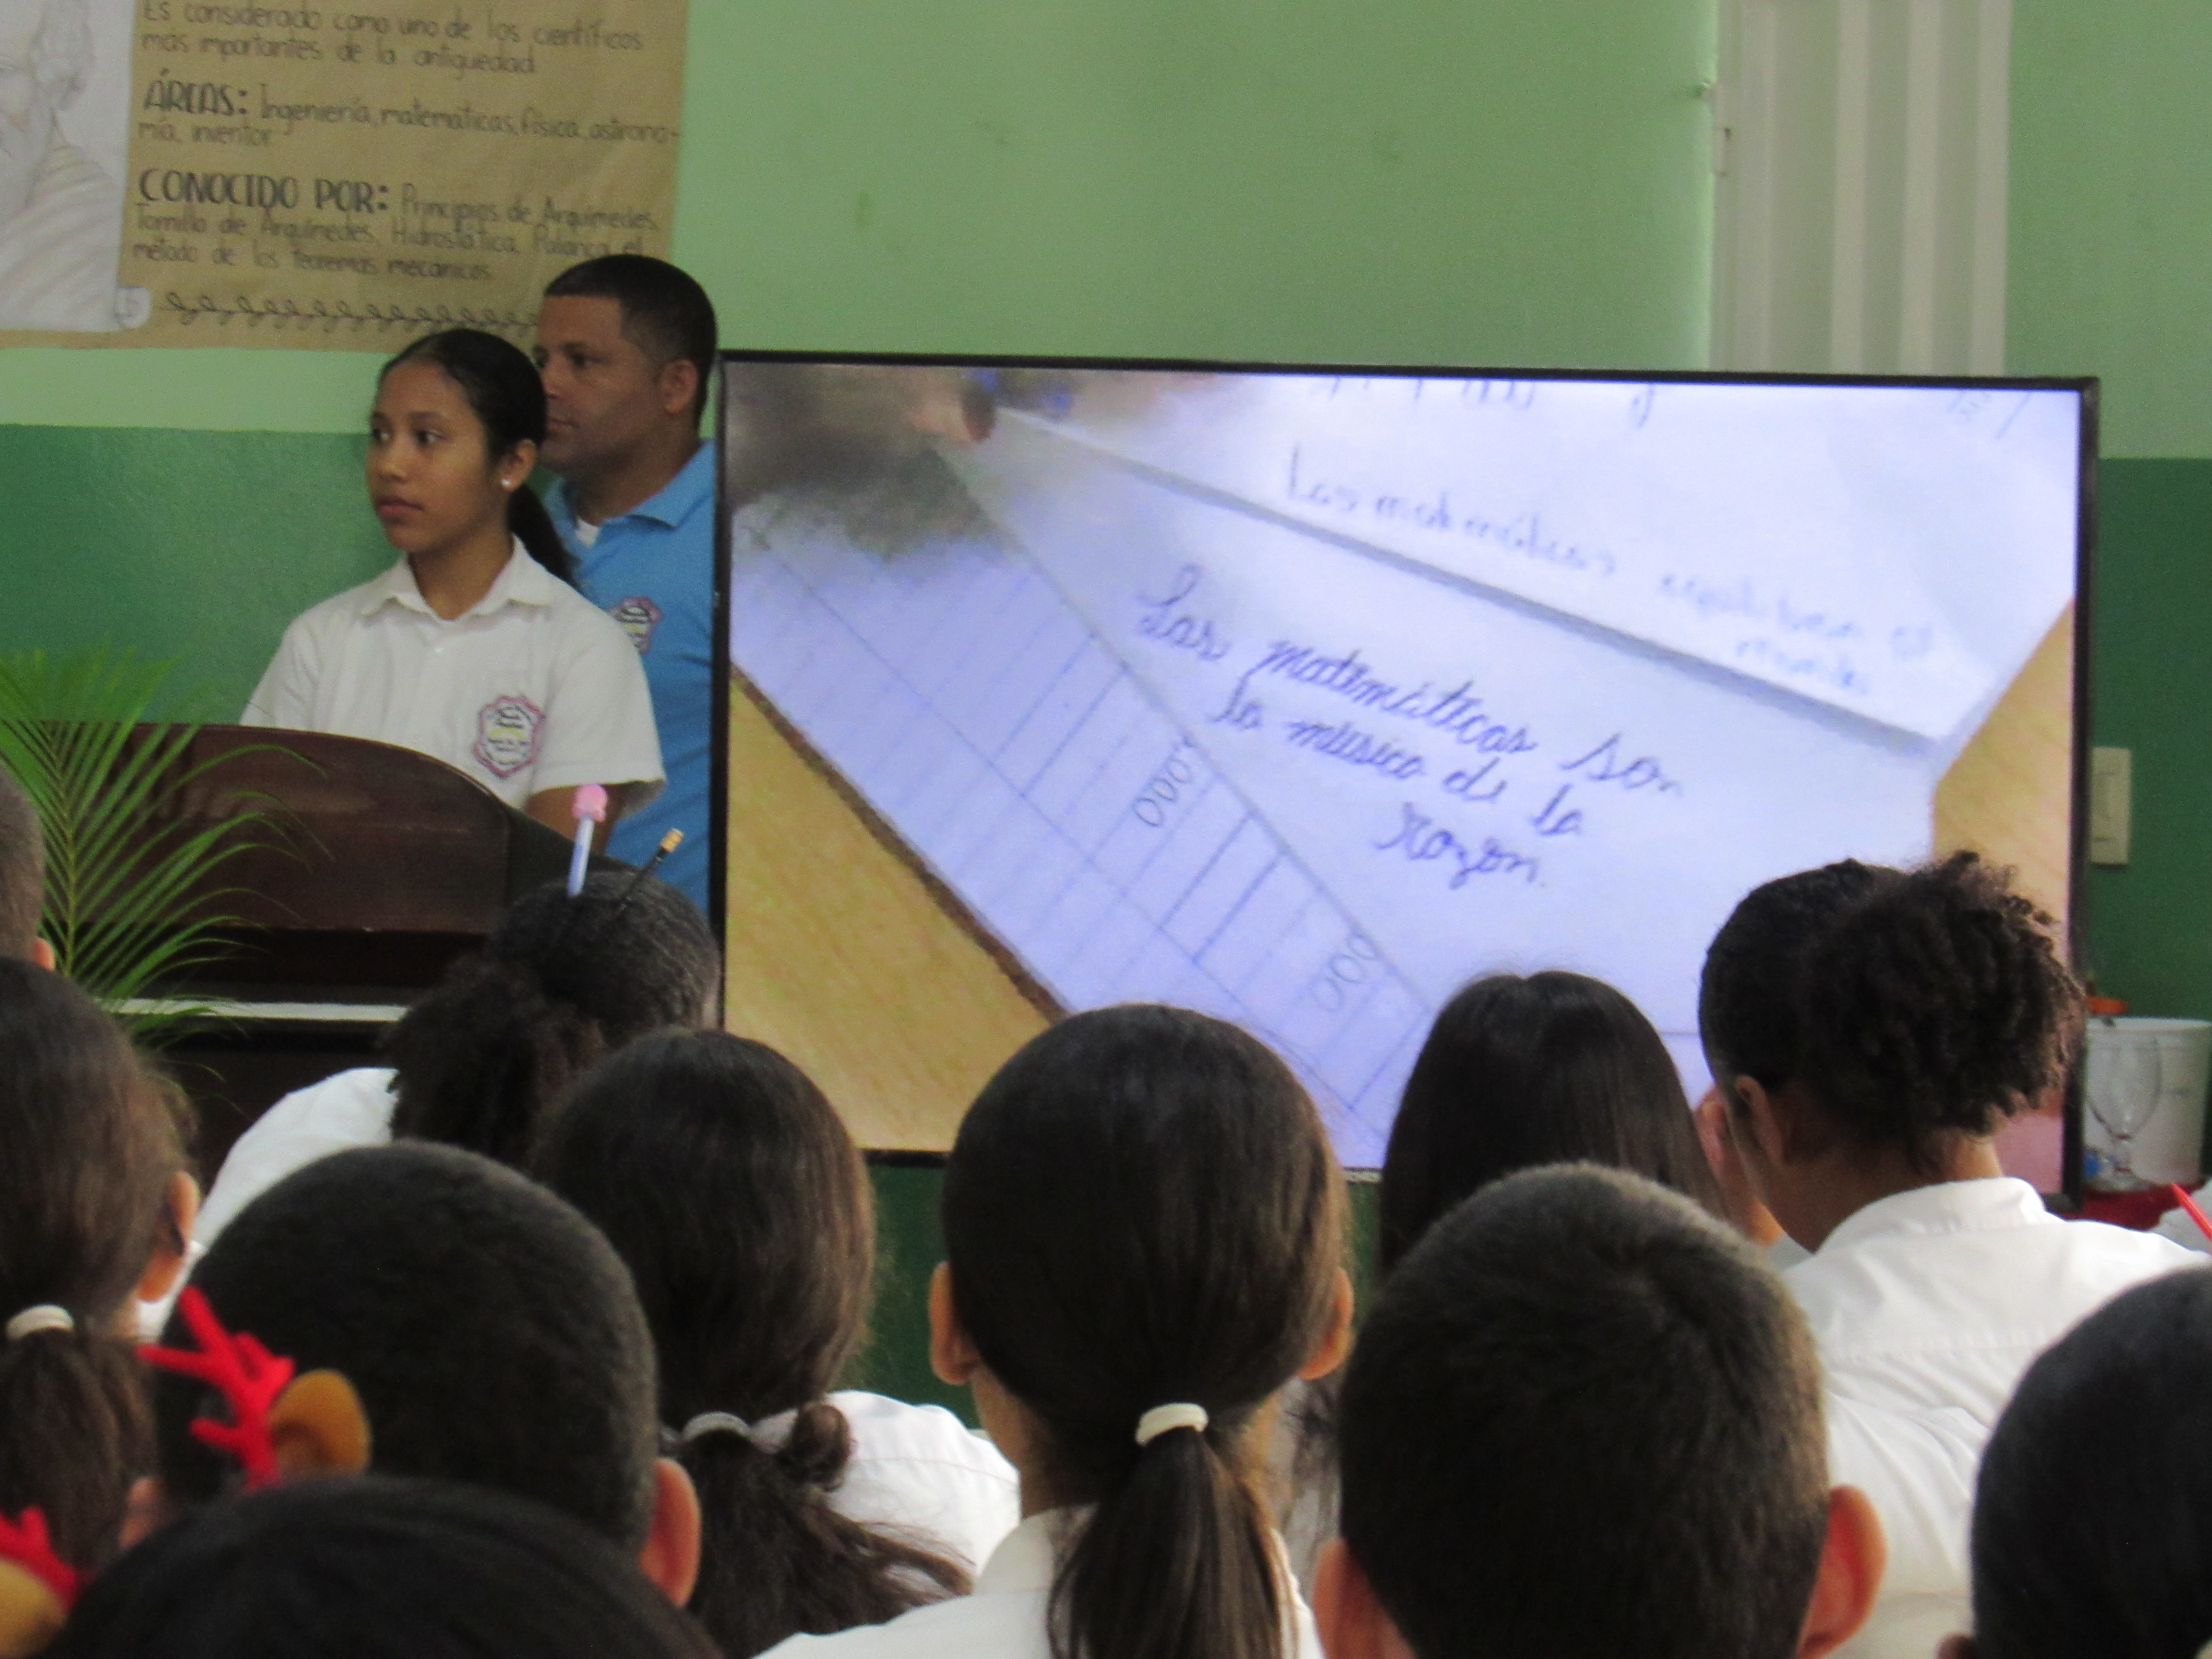 Es considerado como uno de los científicos
mas importantes de la antiguedad
ÁREAS: Ingeniería, matemáticas, física, astrono-
mía, inventor
CONOCIDO POR: Principios de Arquímedes,
Tornillo de Arquímedes, Hidrostática, Palanca, el
método de los teoremas mecánicos
Las matemáticas
Las matemáticas son
la música de la
razon.
000
000